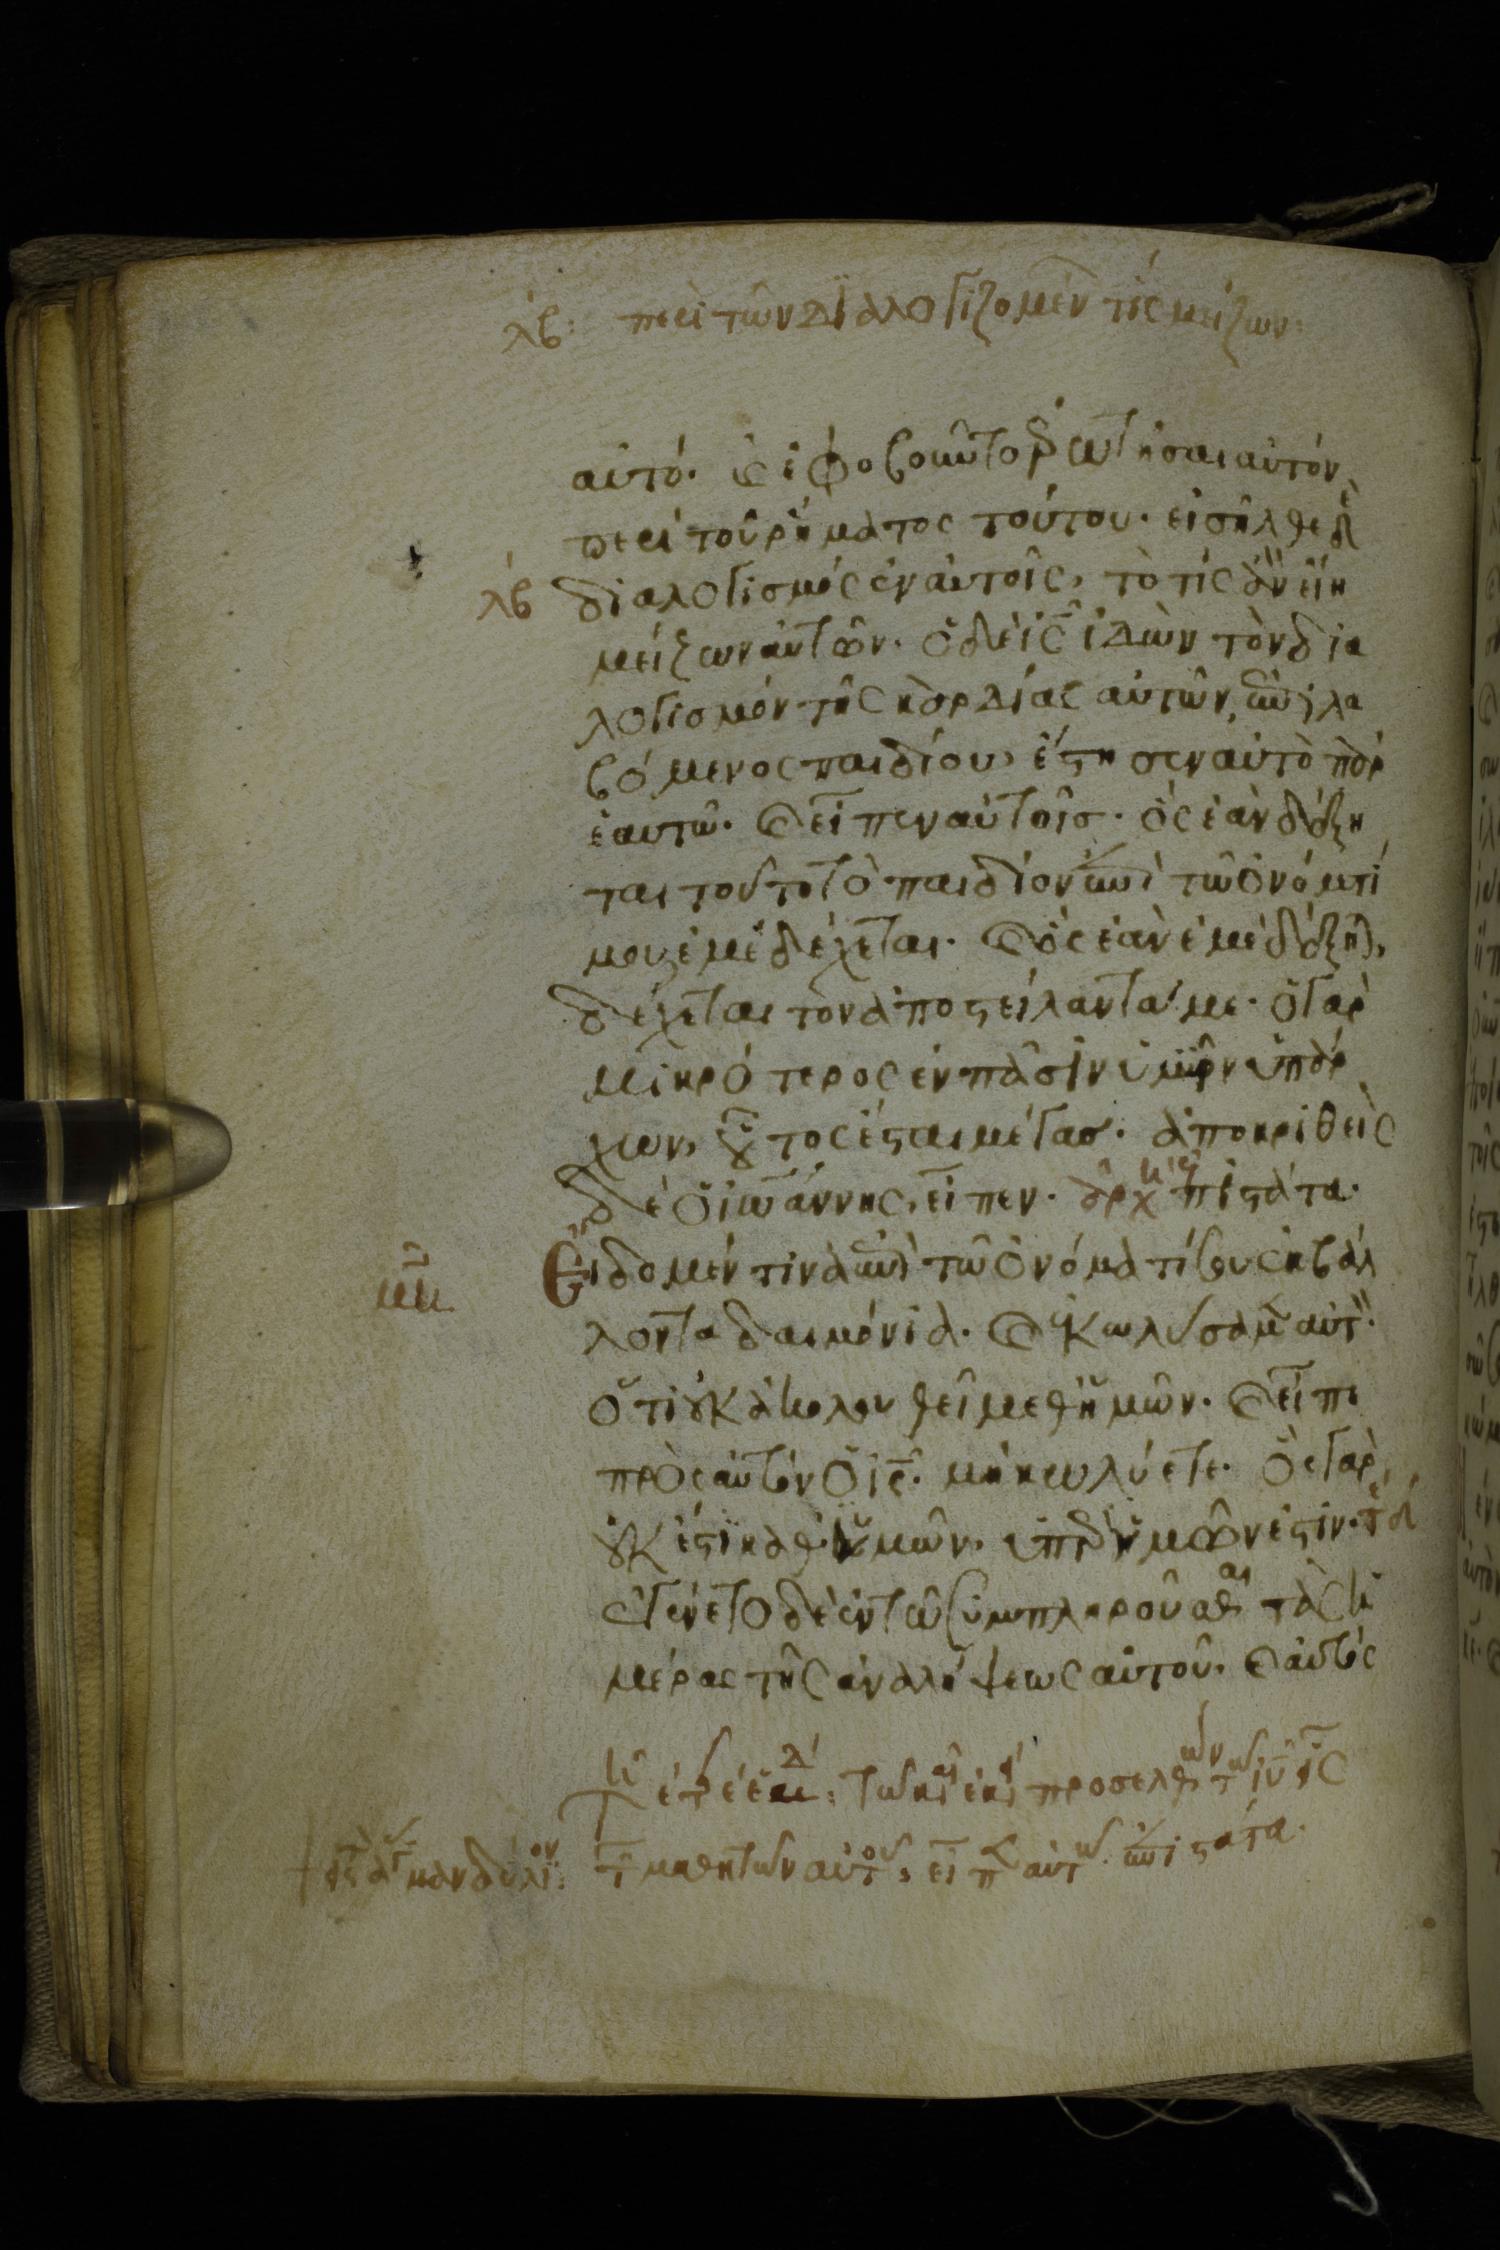 λβ: περὶ τῶν διαλογιζομέν τίς μείζων:
αὐτό. καὶ ἐφοβοῦντο ἐρωτῆσαι αὐτὸν
περὶ τοῦ ῥήματος τούτου. εἰσῆλθε δὲ
λβ διαλογισμός ἐν αὐτοῖς, τὸ τίς ἂν εἴη
μείζων αὐτῶν. ὁ δὲ ις ἰδὼν τὸν δια
λογισμόν τῆς καρδίας αὐτῶν, ἐπιλα
βόμενος παιδίου, ἔστησεν αὐτὸ παρ
ἑαυτῶ. καὶ εἶπεν αὐτοῖς. ὃς ἐὰν δέξη
ται τοῦτο τὸ παιδίον ἐπὶ τῶ ὀνόματί
μου, ἐμὲ δέχεται. καὶ ὃς ἐὰν ἐμὲ δέξηται,
δέχεται τὸν ἀποστείλαντά με. ὁ γὰρ
μικρότερος ἐν πᾶσιν ὑμῖν ὑπάρ
χων, οὗτος ἔσται μέγας. ἀποκριθεὶς
δὲ ὁ ἰωάννης, εἶπεν. ἀρχ ἐπιστάτα.
Εἴδομέν τινα ἐπὶ τῶ ὀνόματί σου ἐκβάλ
λοντα δαιμόνια. καὶ ἐκωλύσαμεν αὐτὸν.
ὅτι οὐκ ἀκολουθεῖ μεθ ἡμῶν. καὶ εἶπε
πρὸς αὐτὸν ὁ ις. μὴ κωλύετε. ὃς γὰρ
οὐκ ἔστι καθ ἡμῶν. ὑπὲρ ἡμῶν ἐστιν. τέλ
ἐγένετο δὲ ἐν τῶ συμπληροῦσθαι τὰς ἡ
μέρας τῆς ἀναλήψεως αὐτοῦ. καὶ αὐτὸς
τῶ καιρῶ ἐκείνω προσελθών τῶ ιυ εἷς
τῶν μαθητῶν αὐτοῦ, εἶπεν αὐτῶ. ἐπιστάτα.